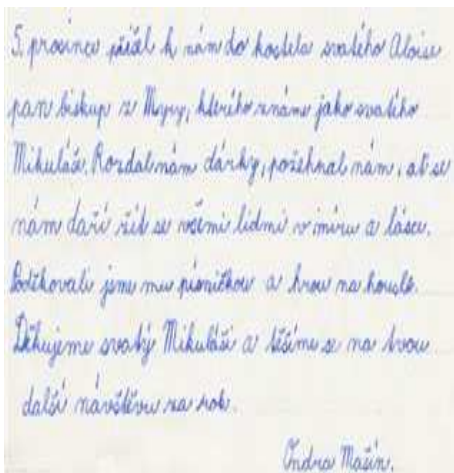 5. prosince přišel k nám do kostela svatého Aloise
pan biskup z Myry, kterého známe jako svatého
Mikuláše. Rozdal nám dárky, požehnal nám, ať se
nám daří žít se všemi lidmi v míru a lásce.
Poděkovali jsme mu písničkou a hrou na housle.
Děkujeme svatý Mikuláši a těšíme se na tvou
další návštěvu za rok.
Ondra Mašín.